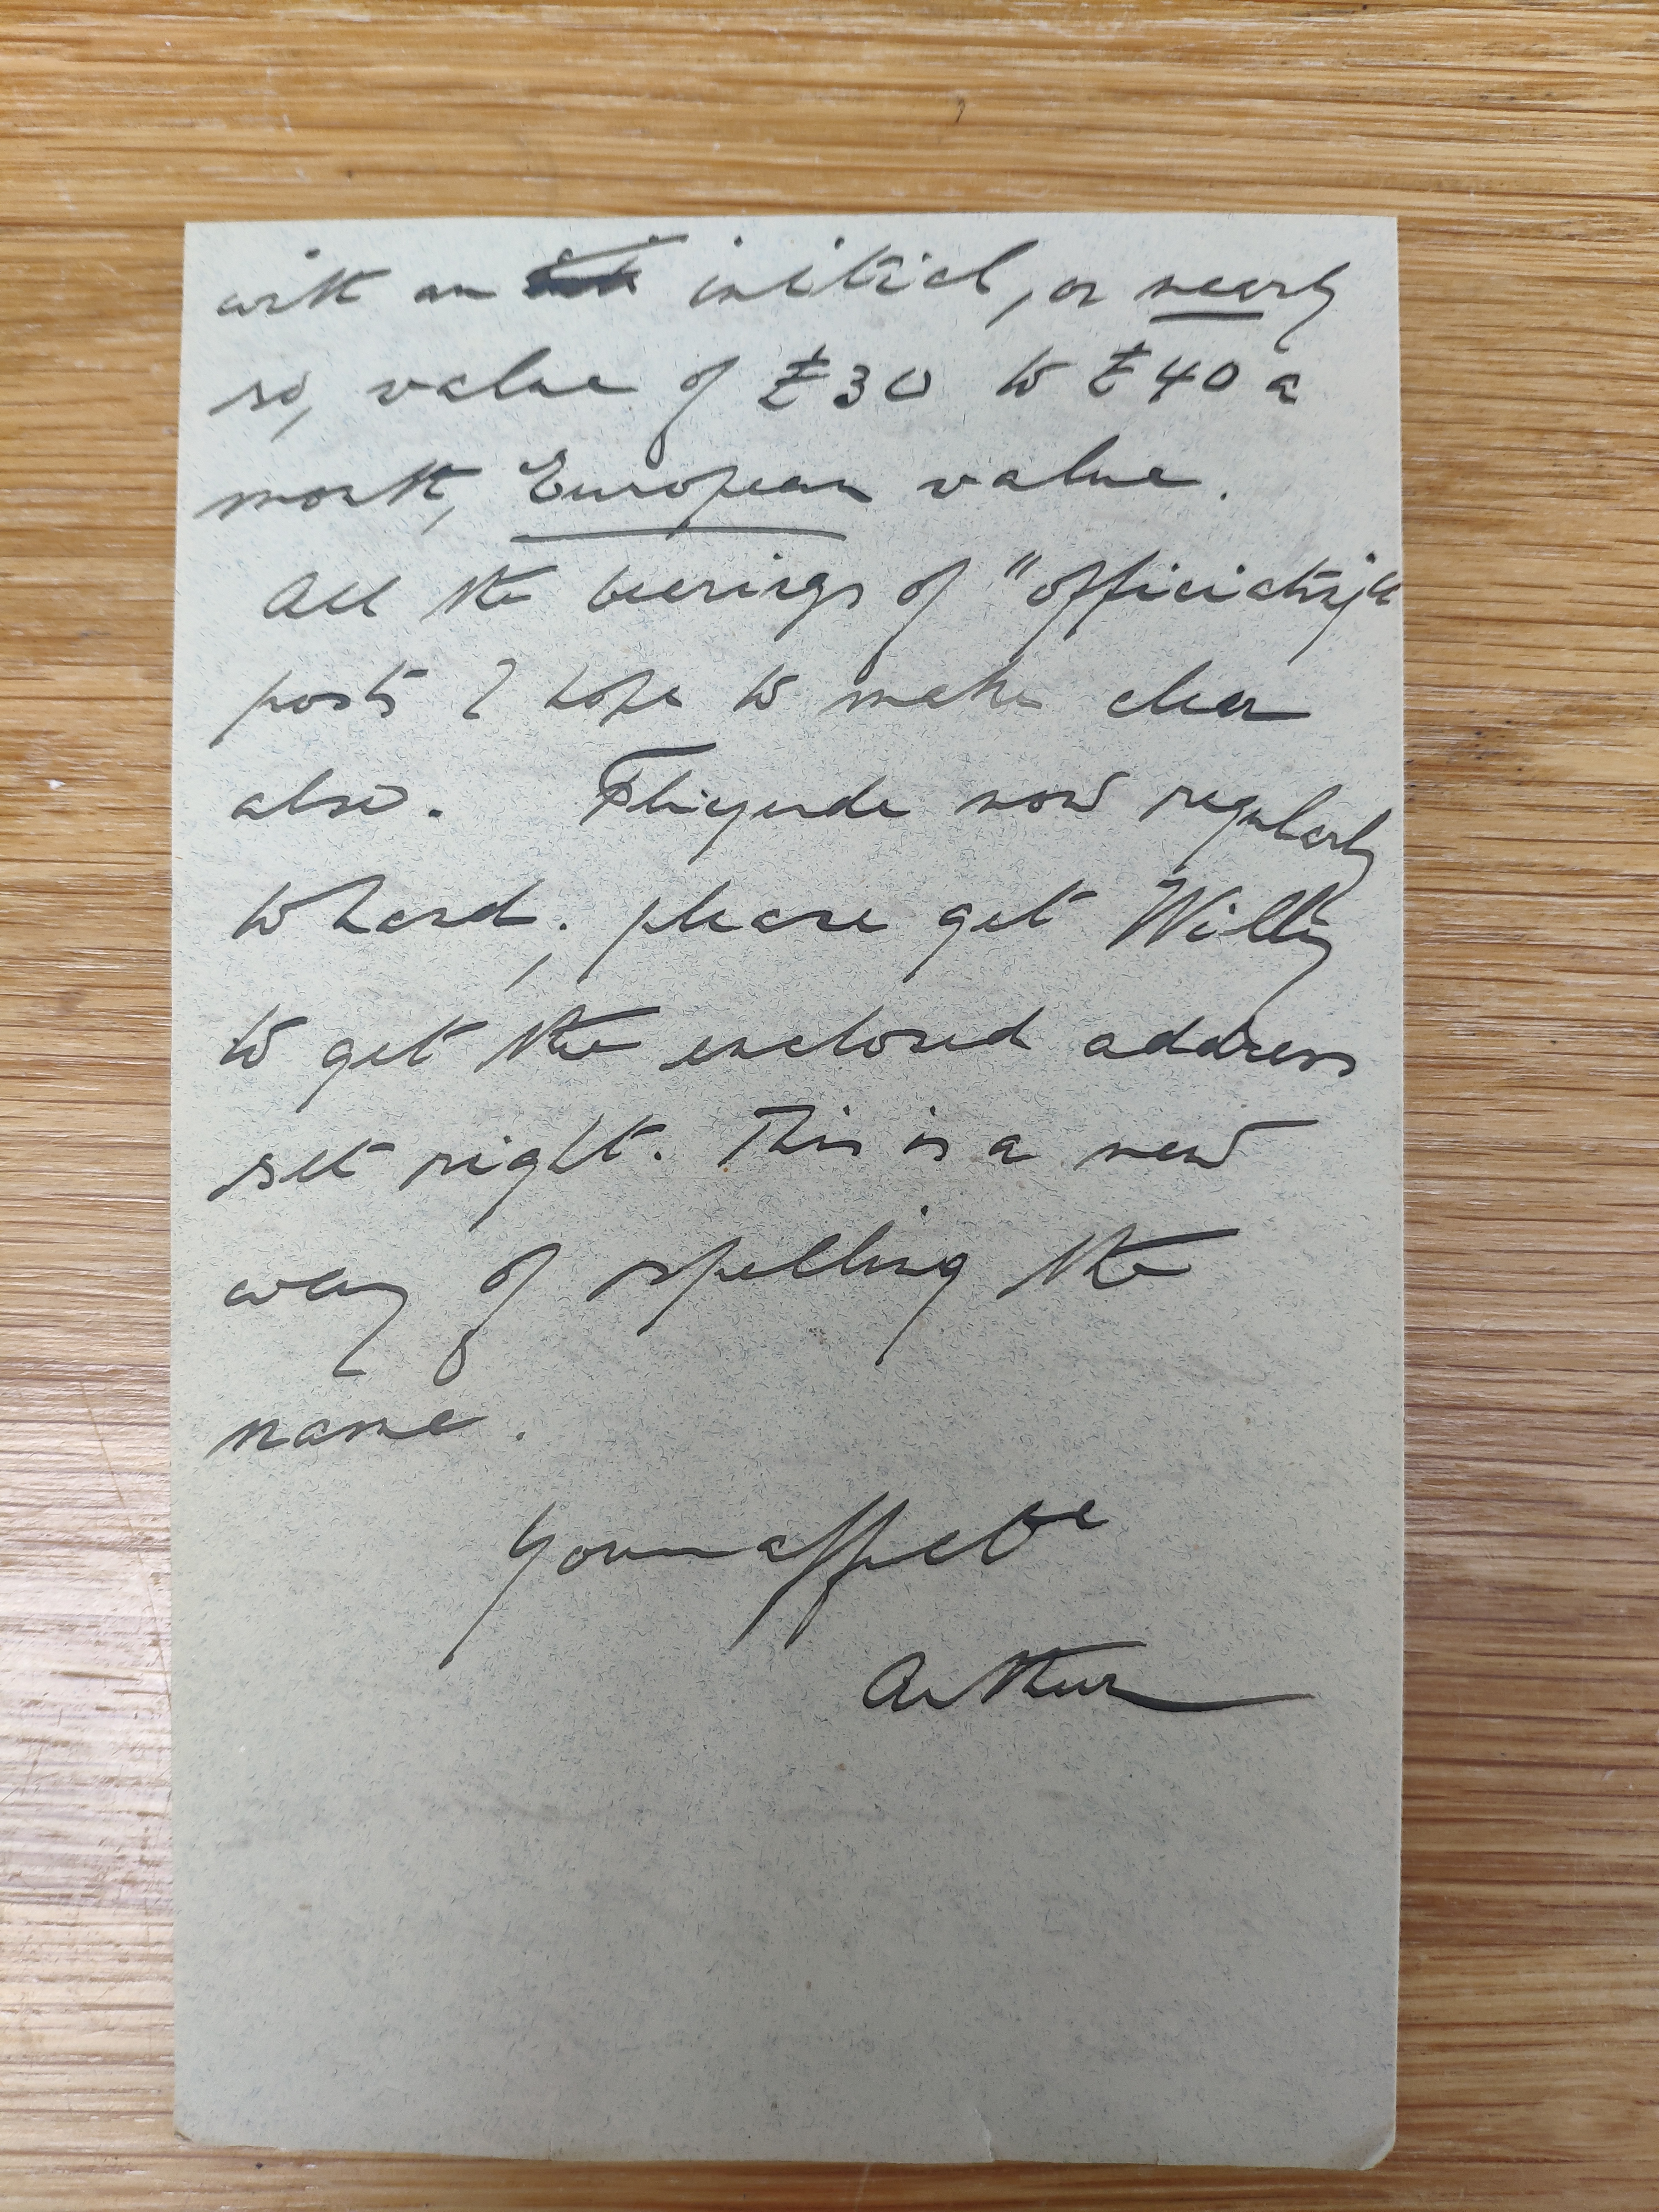 with an initial, or nearly
so, value of £30 to £40 a
month, European value.
All the bearings of "officiating"
posts I hope to make clear
also. Fliegende now regularly
to hand; please get Willy
to get the enclosed address
set right. This is a new
way of spelling the
name.
Your affecte
Arthur